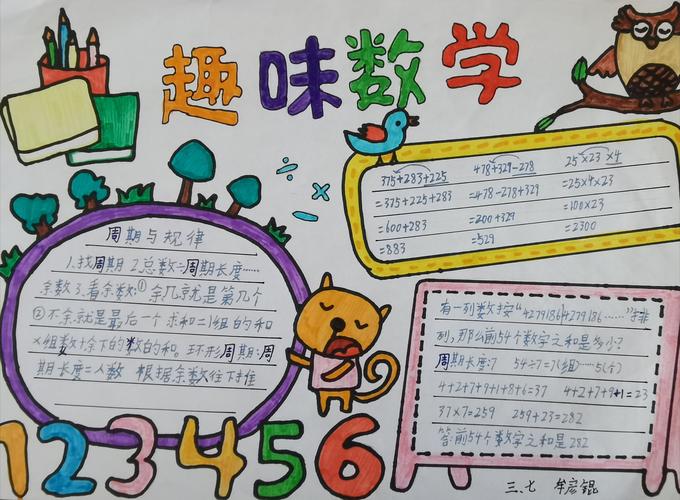 趣味数学
375+283+225
=375+225+283
=600+283
=883
478+329-278
=478-278+329
=200+329
=529
25×23×4
=25×4×23
=100×23
=2300
周期与规律
1.找周期 2.总数÷周期长度……
余数 3.看余数:①余几就是第几个
②不余就是最后一个 求和=1组的和
×组数+余下的数的和。环形周期:周
期长度=人数 根据余数往下推
有一列数按“4279186|4279186……”排
列,那么前54个数字之和是多少?
周期长度:7 54÷7=7(组)……5(个)
4+2+7+9+1+8+6=37 4+2+7+9+1=23
37×7=259 259+23=282
答:前54个数字之和是282
123456
三、七 牟宏锟